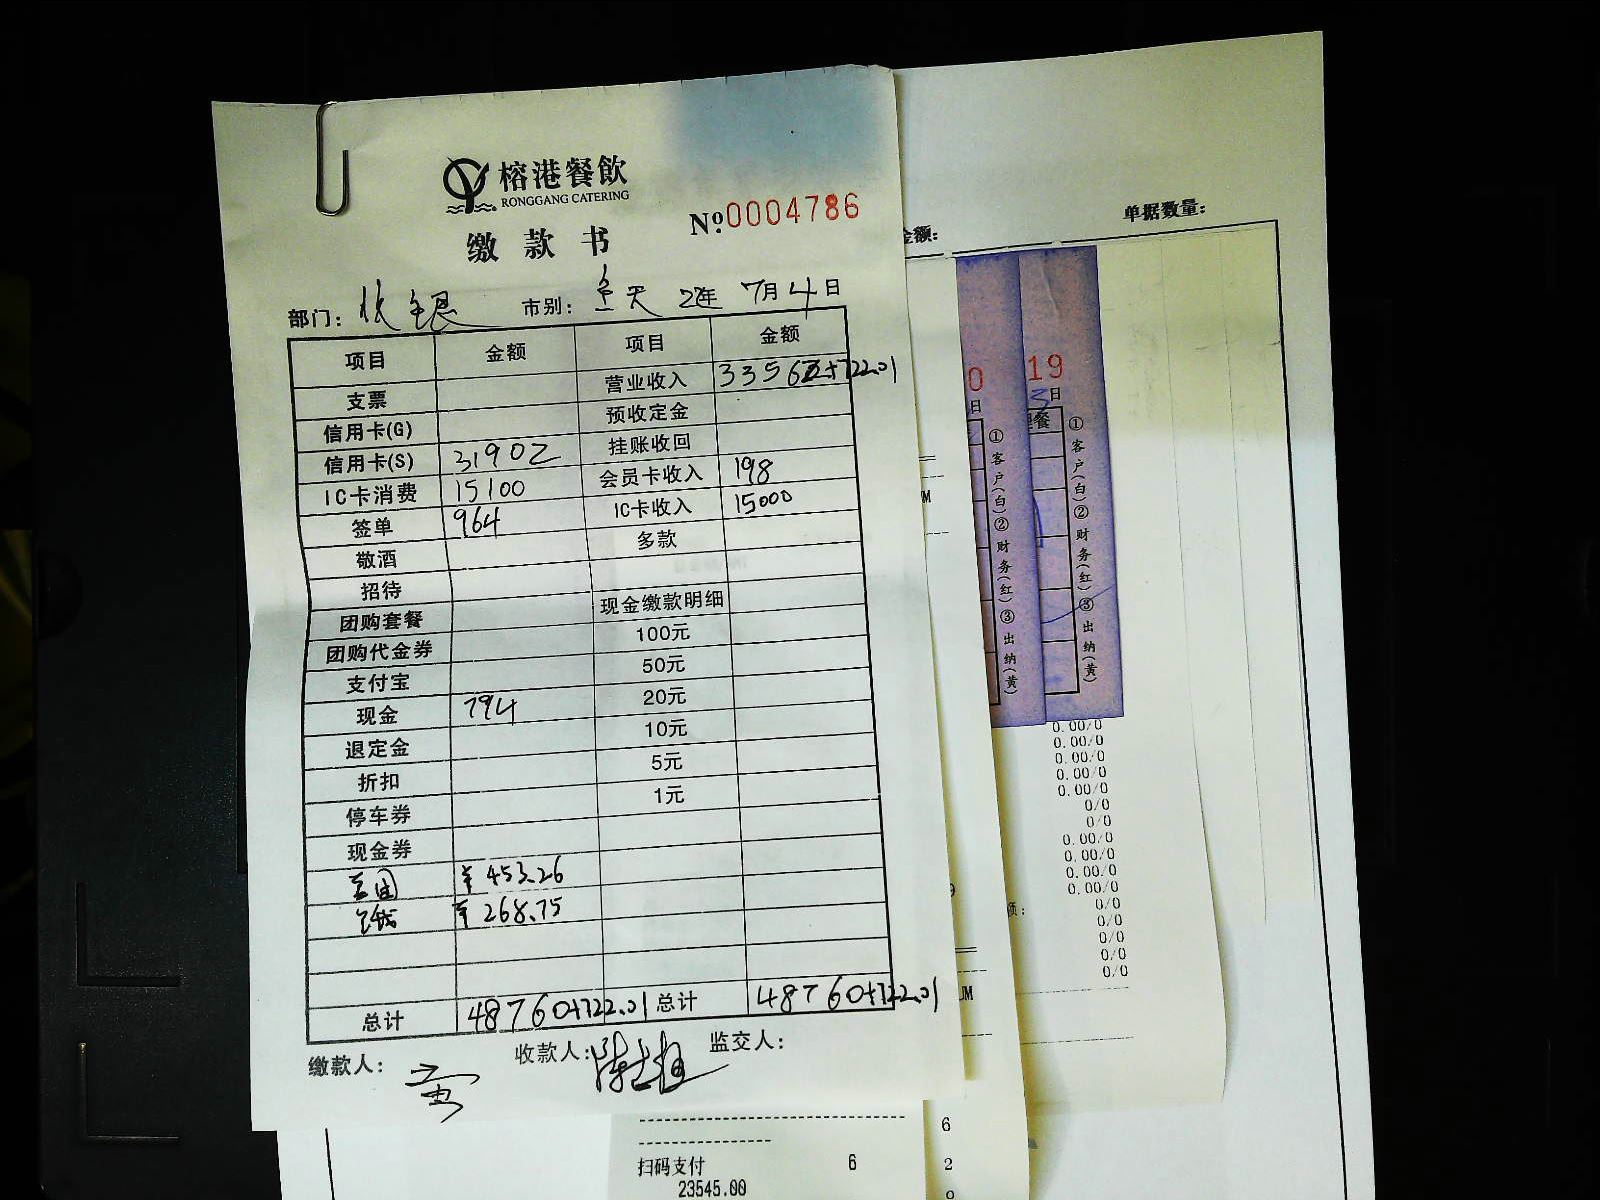 榕港餐飲
RONGGANG CATERING
№ 0004786
缴款书
部门: 收银 市别: 全天 22年 7月4日
项目 金额 项目 金额
支票 营业收入 33562+722.01
信用卡(G) 预收定金
信用卡(S) 31902 挂账收回
IC卡消费 15100 会员卡收入 198
签单 964 IC卡收入 15000
敬酒 多款
招待
团购套餐 现金缴款明细
团购代金券 100元
支付宝 50元
现金 794 20元
退定金 10元
折扣 5元
停车券 1元
现金券
美团 ¥453.26
¥268.75
总计 48760+722.01 总计 48760+722.01
缴款人: 收款人: 监交人:
扫码支付 6
23545.00
金额: 单据数量:
0 19
日 3日
①客户(白)②财务(红)③出纳(黄)
①客户(白)②财务(红)③出纳(黄)
0.00/0
0.00/0
0.00/0
0.00/0
0.00/0
0/0
0/0
0.00/0
0.00/0
0.00/0
0.00/0
0/0
0/0
0/0
0/0
0/0
6
2